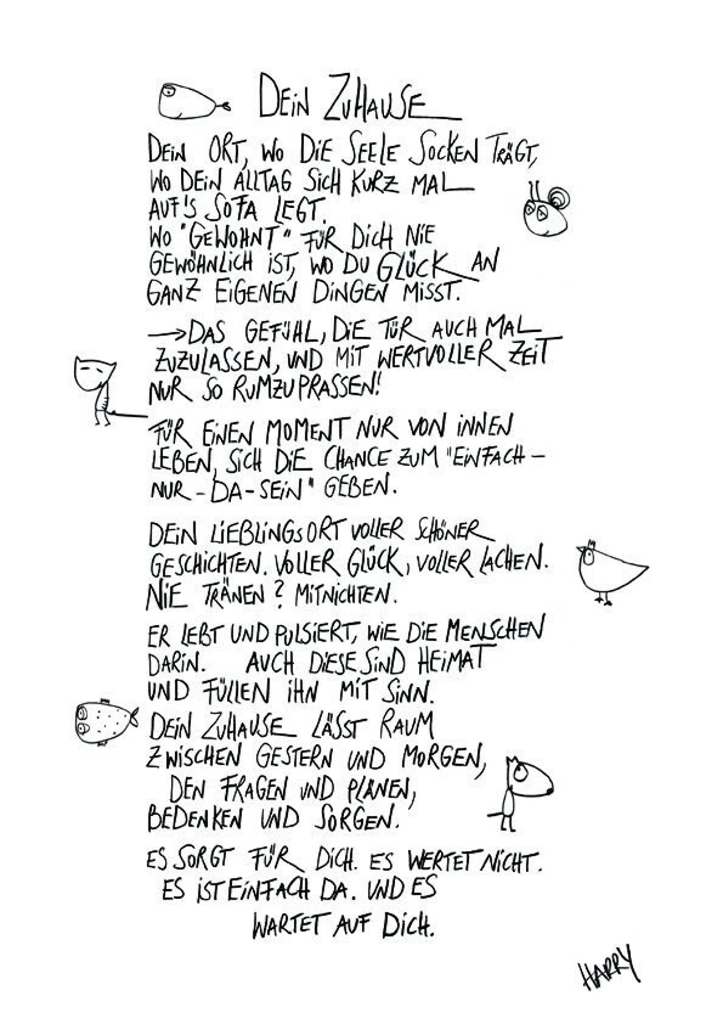 DEIN ZUHAUSE
DEIN ORT, WO DIE SEELE SOCKEN TRÄGT,
WO DEIN ALLTAG SICH KURZ MAL
AUF'S SOFA LEGT.
WO "GEWOHNT" FÜR DICH NIE
GEWÖHNLICH IST, WO DU GLÜCK AN
GANZ EIGENEN DINGEN MISST.
→DAS GEFÜHL, DIE TÜR AUCH MAL
ZUZULASSEN, UND MIT WERTVOLLER ZEIT
NUR SO RUMZUPRASSEN!
FÜR EINEN MOMENT NUR VON INNEN
LEBEN, SICH DIE CHANCE ZUM "EINFACH-
NUR-DA-SEIN" GEBEN.
DEIN LIEBLINGSORT VOLLER SCHÖNER
GESCHICHTEN. VOLLER GLÜCK, VOLLER LACHEN.
NIE TRÄNEN? MITNICHTEN.
ER LEBT UND PULSIERT, WIE DIE MENSCHEN
DARIN. AUCH DIESE SIND HEIMAT
UND FÜLLEN IHN MIT SINN.
DEIN ZUHAUSE LÄSST RAUM
ZWISCHEN GESTERN UND MORGEN,
DEN FRAGEN UND PLÄNEN,
BEDENKEN UND SORGEN.
ES SORGT FÜR DICH. ES WERTET NICHT.
ES IST EINFACH DA. UND ES
WARTET AUF DICH.
HARRY